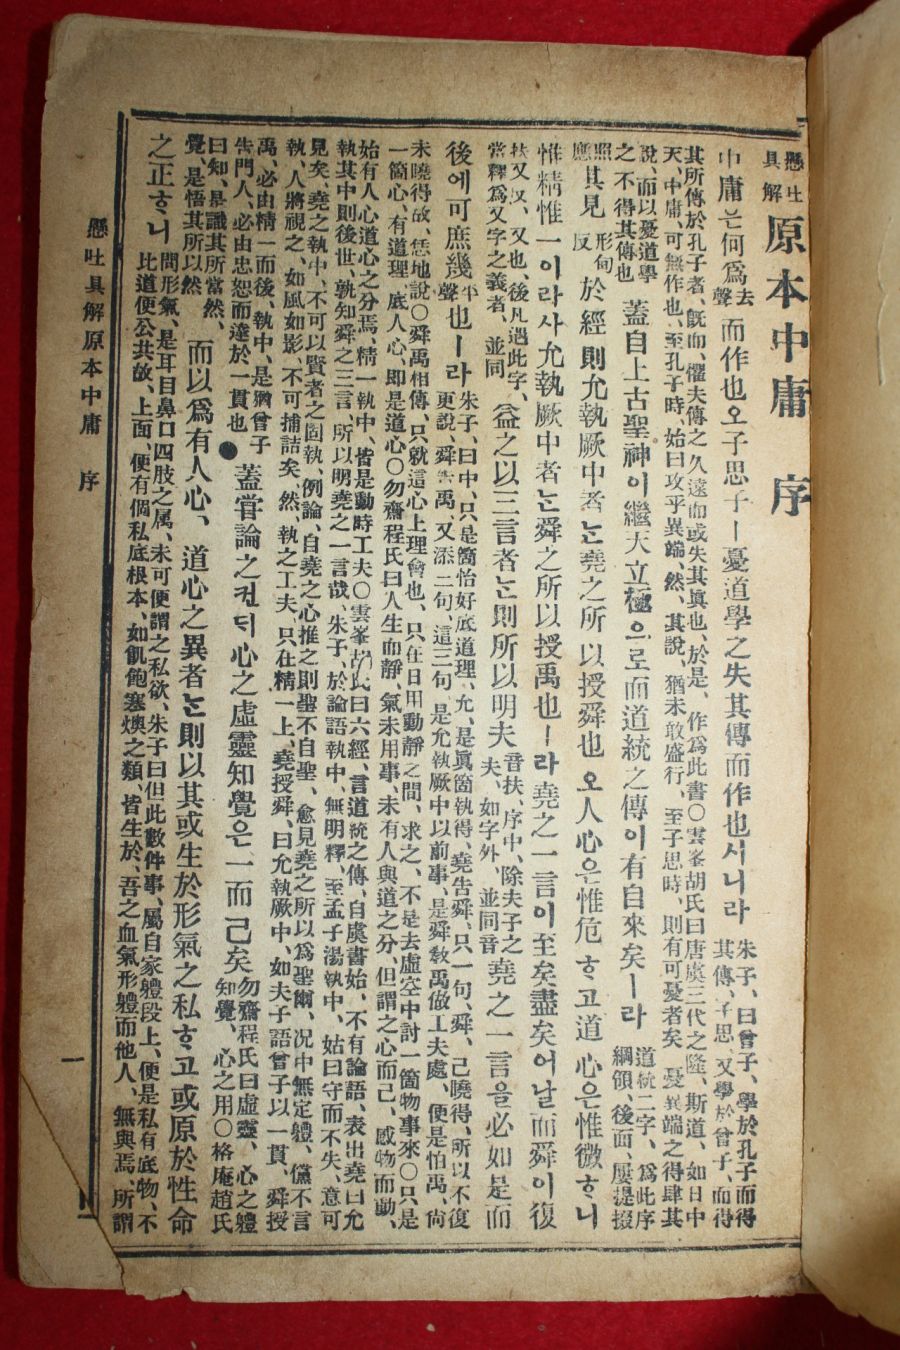 懸吐
具解
原本中庸 序
中庸은何爲
去
聲
而作也오子思子ㅣ憂道學之失其傳而作也시니라
朱子、曰曾子、學於孔子而得
其傳、子思、又學於曾子、而得
其所傳於孔子者、旣而、懼夫傳之久遠而或失其眞也、於是、作爲此書○雲峯胡氏曰唐虞三代之隆、斯道、如日中
天、中庸、可無作也、至孔子時、始曰攻乎異端、然、其說、猶未敢盛行、至子思時、則有可憂者矣、憂異端之得肆其
說、而以憂道學
之不得其傳也
蓋自上古聖神이繼天立極으로而道統之傳이有自來矣ㅣ라
道統二字、爲此序
綱領、後面、屢提掇
照
應
其見
形甸
反
於經則允執厥中者는堯之所以授舜也오人心은惟危ᄒᆞ고道心은惟微ᄒᆞ니
惟精惟一이라사允執厥中者는舜之所以授禹也ㅣ라堯之一言이至矣盡矣어날而舜이復
扶又、又、又也、後凡遇此字、
當釋爲又字之義者、並同
益之以三言者는則所以明夫
音扶、序中、除夫子之
夫、如字外、並同音
堯之一言을必如是而
後에可庶幾
平
聲
也ㅣ라
朱子、曰中、只是箇恰好底道理、允、是眞箇執得、堯告舜、只一句、舜、已曉得、所以不復
更說、舜告禹、又添三句、這三句、是允執厥中以前事、是舜敎禹做工夫處、便是怕禹、尙
未曉得故、恁地說○舜禹相傳、只就這心上理會也、只在日用動靜之間、求之、不是去虛空中討一箇物事來○只是
一箇心、有道理、底人心、即是道心○勿齋程氏曰人生而靜、氣未用事、未有人與道之分、但謂之心而已、感物而動、
始有人心道心之分焉、精一執中、皆是動時工夫○雲峯胡氏曰六經、言道統之傳、自虞書始、不有論語、表出堯曰允
執其中則後世、孰知舜之三言、所以明堯之一言哉、朱子、於論語執中、無明釋、至孟子湯執中、姑曰守而不失、意可
見矣、堯之執中、不可以賢者之固執、例論、自堯之心推之則聖不自聖、愈見堯之所以爲聖爾、况中無定體、儻不言
執、人將視之、如風如影、不可捕詰矣、然、執之工夫、只在精一上、堯授舜、曰允執厥中、如夫子語曾子以一貫、舜授
禹、必由精一而後、執中、是猶曾子
告門人、必由忠恕而達於一貫也
●蓋嘗論之컨되心之虛靈知覺은一而已矣
勿齋程氏曰虛靈、心之體
知覺、心之用○格庵趙氏
曰知、是識其所當然、
覺、是悟其所以然
而以爲有人心、道心之異者는則以其或生於形氣之私ᄒᆞ고或原於性命
之正ᄒᆞ니
問形氣、是耳目鼻口四肢之属、未可便謂之私欲、朱子曰但此數件事、屬自家體段上、便是私有底物、不
比道便公共故、上面、便有個私底根本、如飢飽寒燠之類、皆生於、吾之血氣形體而他人、無與焉、所謂
懸吐具解原本中庸 序
一